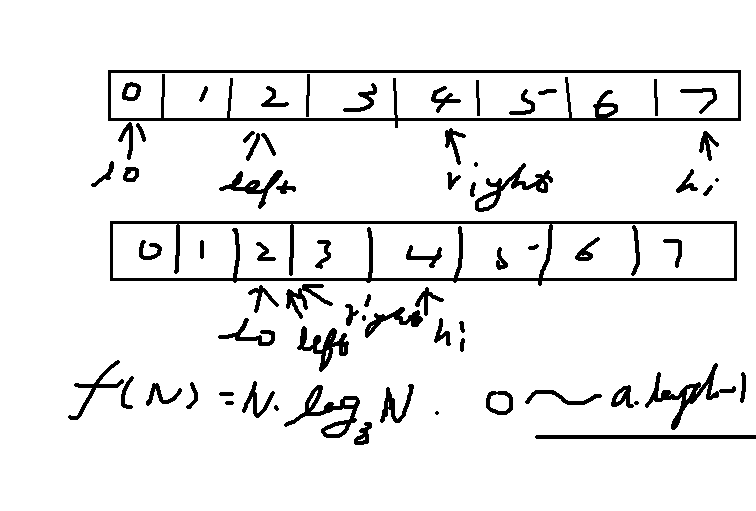 0 1 2 3 4 5 6 7
lo left right hi
0 1 2 3 4 5 6 7
lo left right hi
f(N) = N. log₃N. 0 ~ a.length-1